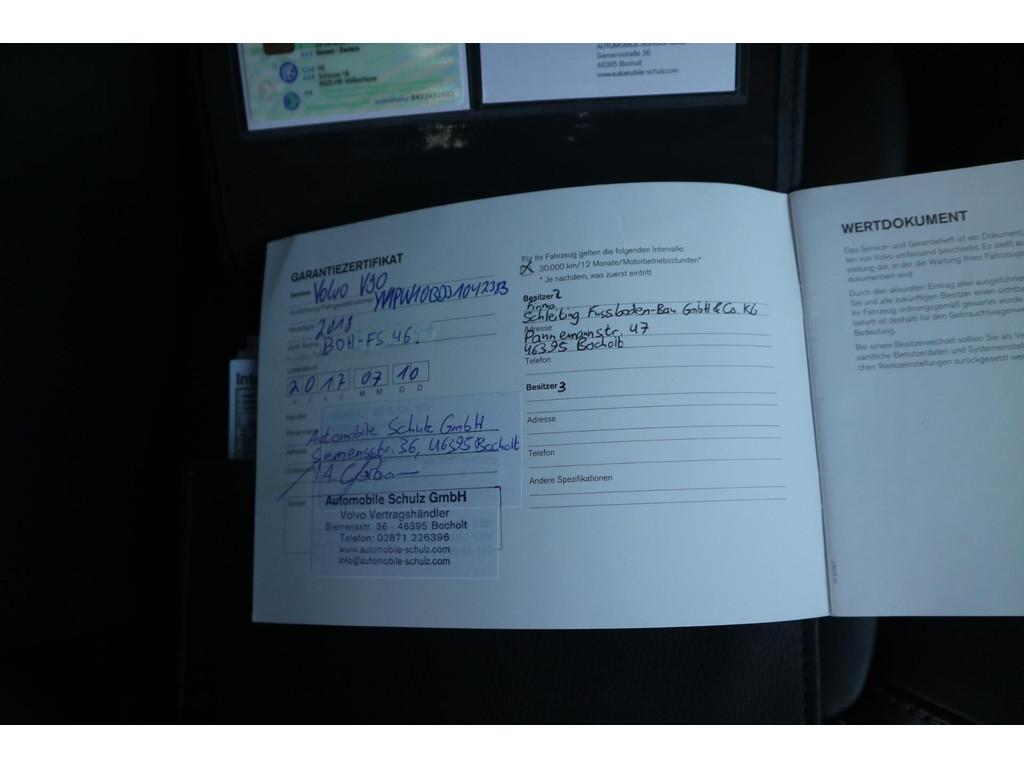 Siemensstraße 36
46395 Bocholt
www.automobile-schulz.com
GARANTIEZERTIFIKAT
Volvo V90
2018
BOH-FS 46
Lieferdatum
2017 07 10
J J J J M M D D
Händler
Automobile Schulz GmbH
Siemensstr. 36, 46395 Bocholt
Automobile Schulz GmbH
Volvo Vertragshändler
Siemensstr. 36 - 46395 Bocholt
Telefon: 02871 226396
www.automobile-schulz.com
info@automobile-schulz.com
Für Ihr Fahrzeug gelten die folgenden Intervalle:
30.000 km/12 Monate/Motorbetriebsstunden*
* Je nachdem, was zuerst eintritt
Besitzer 2
Firma
Schleiting Fussboden-Bau GmbH & Co. KG
Adresse
Pannemannstr. 47
46395 Bocholt
Telefon
Besitzer 3
Adresse
Telefon
Andere Spezifikationen
WERTDOKUMENT
Das Service- und Garantieheft ist ein Dokument,
ten von Volvo umfassend beschreibt. Es stellt au
stellung dar, in der die Wartung Ihres Fahrzeugs
dokumentiert wird.
Durch den akkuraten Eintrag aller ausgeführten
Sie und alle zukünftigen Besitzer einen sichtba
Ihr Fahrzeug ordnungsgemäß gewartet wurde
beheft ist deshalb für den Gebrauchtwagen
Bedeutung.
Bei einem Besitzerwechsel sollten Sie als V
sämtliche Benutzerdaten und Systemeinste
chen Werkseinstellungen zurückgesetzt we